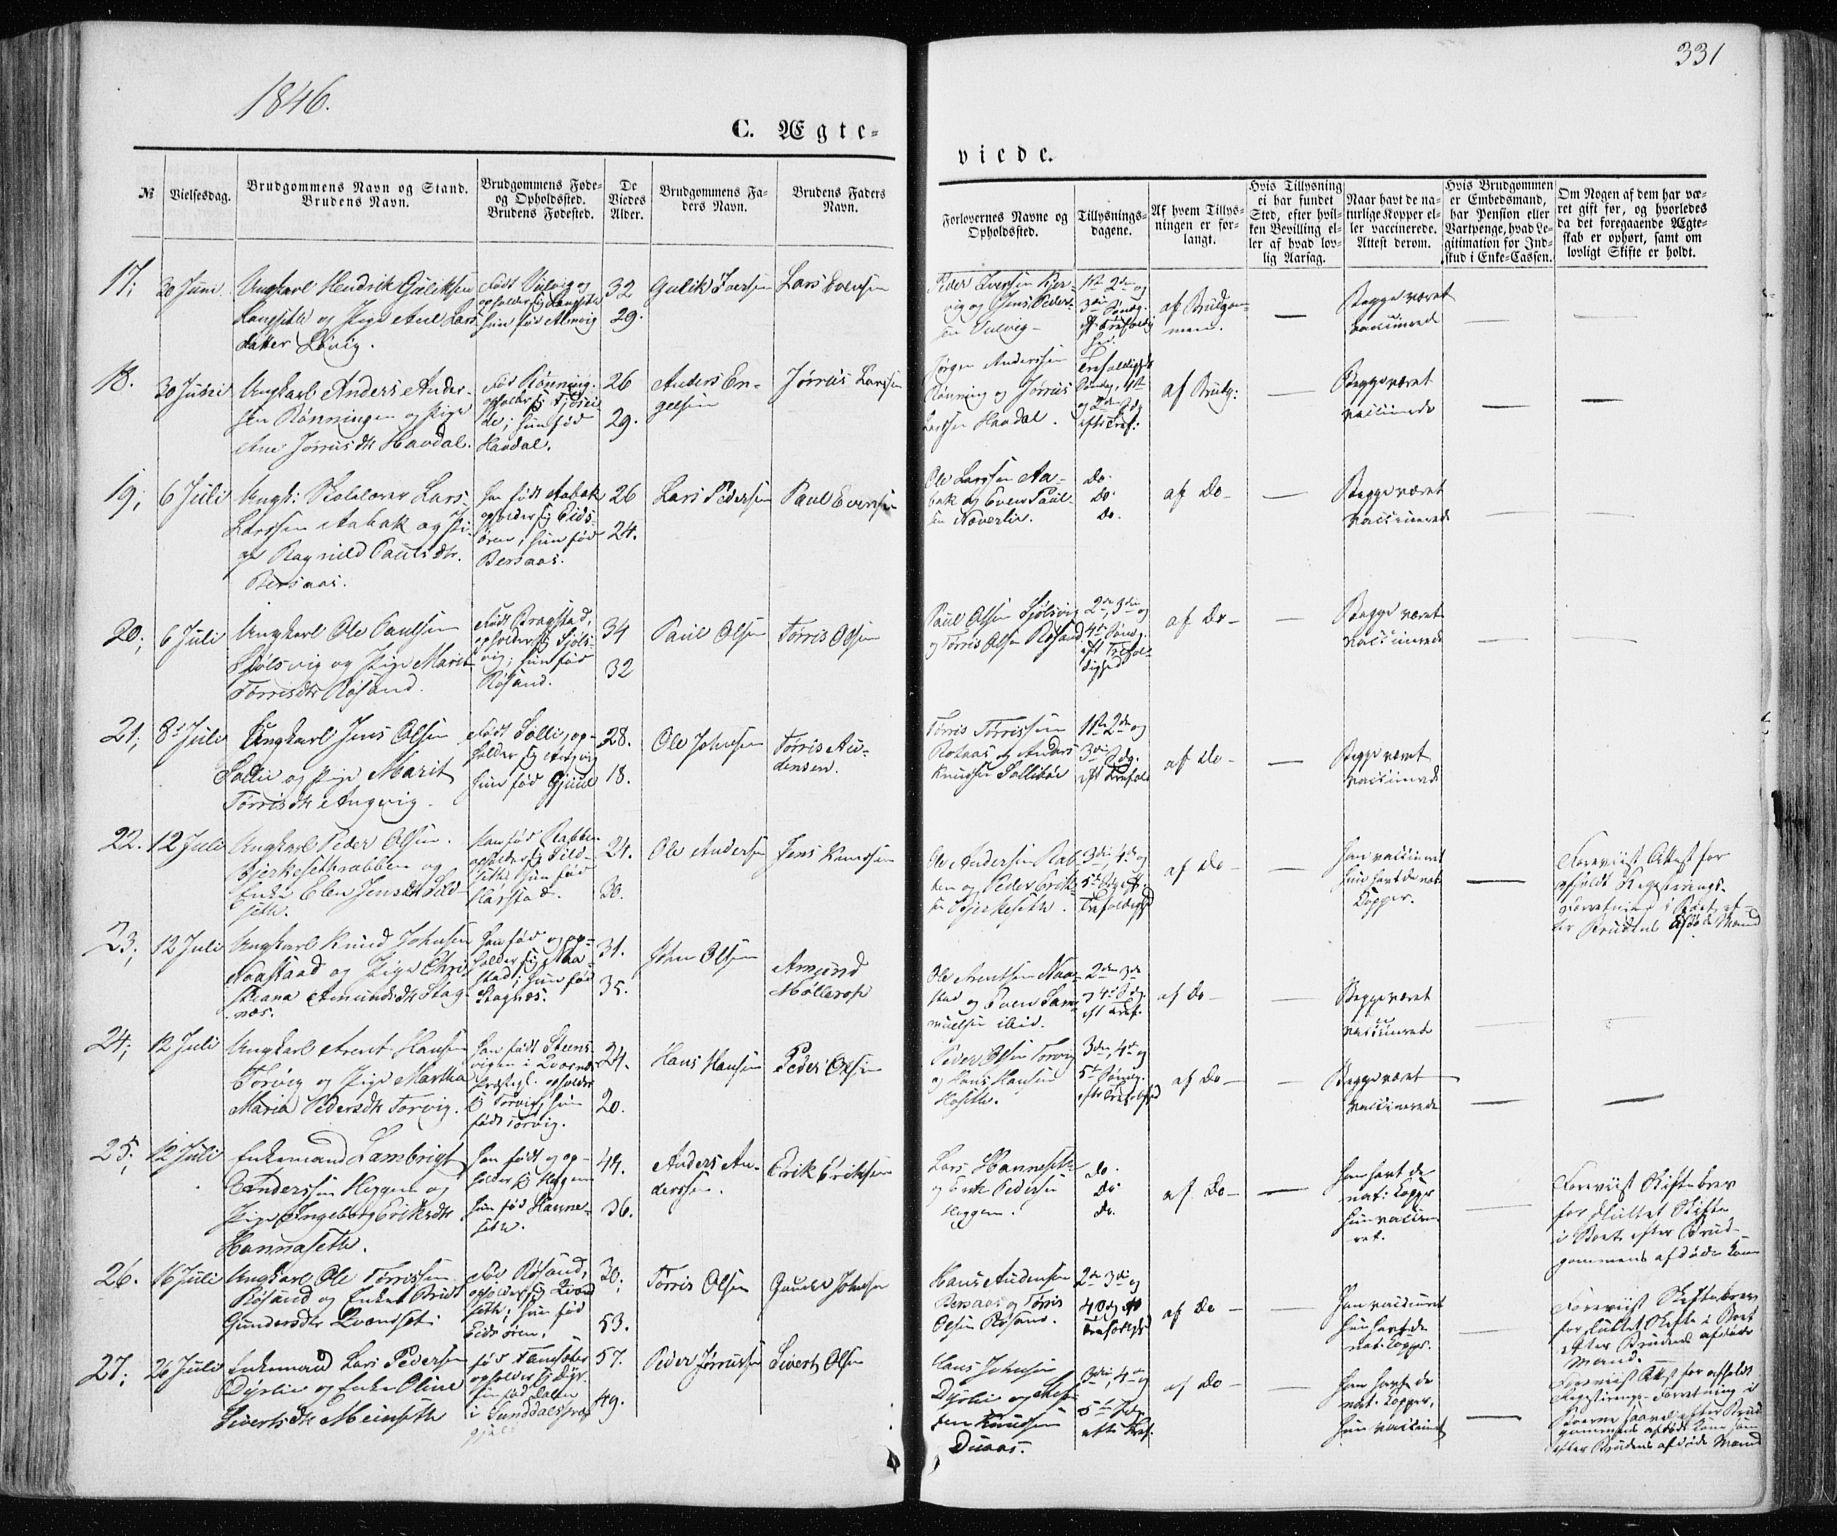 1846.
331
C. Ægte-
viede.
№
Vielsesdag.
Brudgommens Navn og Stand.
Brudens Navn.
Brudgommens Føde-
og Opholdssted.
Brudens Fødested.
De
Viedes
Alder.
Brudgommens Fa-
ders Navn.
Brudens Faders
Navn.
Forlovernes Navne og
Opholdssted.
Tillysnings-
dagene.
Af hvem Tillys-
ningen er for-
langt.
Hvis Tillysning
ei har fundet
Sted, efter hvil-
ken Bevilling el-
ler af hvad lov-
lig Aarsag.
Naar havt de na-
turlige Kopper el-
ler vaccinerede.
Attest derom.
Hvis Brudgommen
er Embedsmand,
har Pension eller
Vartpenge, hvad Le-
gitimation for Ind-
skud i Enke-Cassen.
Om Nogen af dem har væ-
ret gift før, og hvorledes
da det foregaaende Ægte-
skab er ophørt, samt om
lovligt Skifte er holdt.
17;
30 Juni
Ungkarl Hendrik Guliksen
Langsethe og Pige Ane Lars
datter Løvig.
32
29.
Gulik Iversen
Lars Evensen
Peder Iversen
og Jens Peder-
1ste 2den og
3die Søndg.
af Brudgom-
men.
Begge været
vaccinerede
18.
30 Juni
Ungkarl Anders Ander-
sen Rønningen og Pige
Ane Jørrusdtr Havdal.
født Rønning.
hun født
Havdal.
26
29.
Anders En-
gelsen
Jørrus Larssen
Jørgen Anderssen
Rønning og Jørrus
Larssen Havdal.
af Brudg:
Begge været
vaccinerede
19;
6 Juli
Ungk: Skolelærer Lars
Larssen Aabak og Pi-
ge Ragnild Paulsdtr.
Bersaas.
han født Aabak
opholder sig Eids-
øren; hun født
Bersaas.
26
24.
Lars Pedersen
Paul Evensen
Ole Larssen Aa-
bak og Even Paul-
sen Næverlie.
do.
do.
do.
af do
Begge været
vaccinerede
20;
6 Juli
Ungkarl Ole Paulsen
Sjølsvig og Pige Marit
Torrisdtr Røsand.
født Bragstad,
opholder sig Sjøls-
vig; hun født
Røsand.
34
32
Paul Olsen
Torris Olsen
Paul Olsen Sjølsvig
og Torris Olsen Røsand
2den, 3die og
4de Søndg.
eft Trefol-
dighed
af do
Begge været
vaccinerede
21;
8de Juli
Ungkarl Jens Olsen
Sollie og Pige Marit
Torrisdtr Angvig.
født Solli, op-
holder sig Angvig
hun født Gjuul
28.
18.
Ole Johnsen
Torris Au-
densen.
Torris Torrissen
og Anders
Knudsen
1ste 2den og
3die Sdg.
eft Trefold
af do
Begge været
vaccinerede
22.
12 Juli
Ungkarl Peder Olsen
Bjerkesethrabben og
Enke Elen Jensdtr Sild-
seth.
han født Rabben
opholder sig Sild-
seth hun født
24.
30.
Ole Andersen
Jens Knudsen
Ole Andersen Rab-
ben og Peder Erik-
sen Bjerkeseth.
3die, 4de og
5te Sdg eft.
Trefoldighed
af do
han vaccineret
hun havt de nat.
Kopper.
Foreviist Attest for
afholdt Registrerings-
Forretning i Boet ef-
ter Brudens afdøde Mand
23;
12 Juli
Ungkarl Knud Johnsen
Naastaad og Pige Chris
tiana Amundsdtr Stag-
næs.
han født og op-
holder sig Naa-
stad; hun født
Stagnæs.
31.
35.
John Olsen
Amund
Møllerop
Ole Arentsen Naa-
stad og Even Sam-
uelsen ibid.
2den 3die
og 4de Sdg.
eft Tref.
af do
Begge været
vaccinerede
24;
12 Juli
Ungkarl Arent Hansen
Torvig og Pige Martha
Maria Pedersdtr Torvig.
han født Steens-
vigen i Qværnes
Præstegl. opholder
sig Torvig, hun
født Torvig.
24.
20.
Hans Hansen
Peder Olsen
Peder Olsen Torvig
og Hans Hansen
3die, 4de og
5te Søndg.
efter Trefoldighed
af do
Begge været
vaccinerede
25;
12 Juli
Enkemand Lambrigt
Anderssen Heggem og
Pige Ingeborg Eriksdtr
Hannaseth.
han født og op-
holder sig Heggem
hun født Hanne-
seth.
49.
36.
Anders An-
derssen.
Erik Eriksen
Lars Hanneseth
og Erik Pedersen
Heggem.
do.
do.
do.
af do
han havt de
nat. Kopper
hun vaccine-
ret.
Foreviist Skiftebrev
for sluttet Skifte
i Boet efter Brud-
gommens afdøde Kone
26.
16 Juli
Ungkarl Ole Torrissen
Røsand og Enke Brit
Gundersdtr Qvandset.
født Røsand,
opholder sig Qvand
seth; hun født
Eidsøren.
30;
53.
Torris Olsen
Gunder Johnsen
Hans Andersen
Bersaas og Torris
Olsen Røsand.
2den 3die og
4 Sdg eft
Trefoldighed
af do
han vaccineret
hun havt de
nat. Kopper.
Foreviist Skiftebrev
for sluttet Skifte i Boet
efter Brudens afdøde
Mand.
27;
26 Juli
Enkemand Lars Pedersen
Dyrlie og Enke Oline
Sivertsdtr Meinseth
i Sunddals Præste
gjæld
57.
49.
Peder Jørrussen
Sivert Olsen
Hans Johnsen
Dyrlie og
Knudsen
3die, 4de og
5te Sdg
efter Tref.
af do
han havt de
nat. Kopper,
hun vaccineret
Foreviist Attest for afholdt
Registrerings Forretning i
Boerne saavel efter Brud-
gommens afdøde Kone som
efter Brudens afdøde Mand